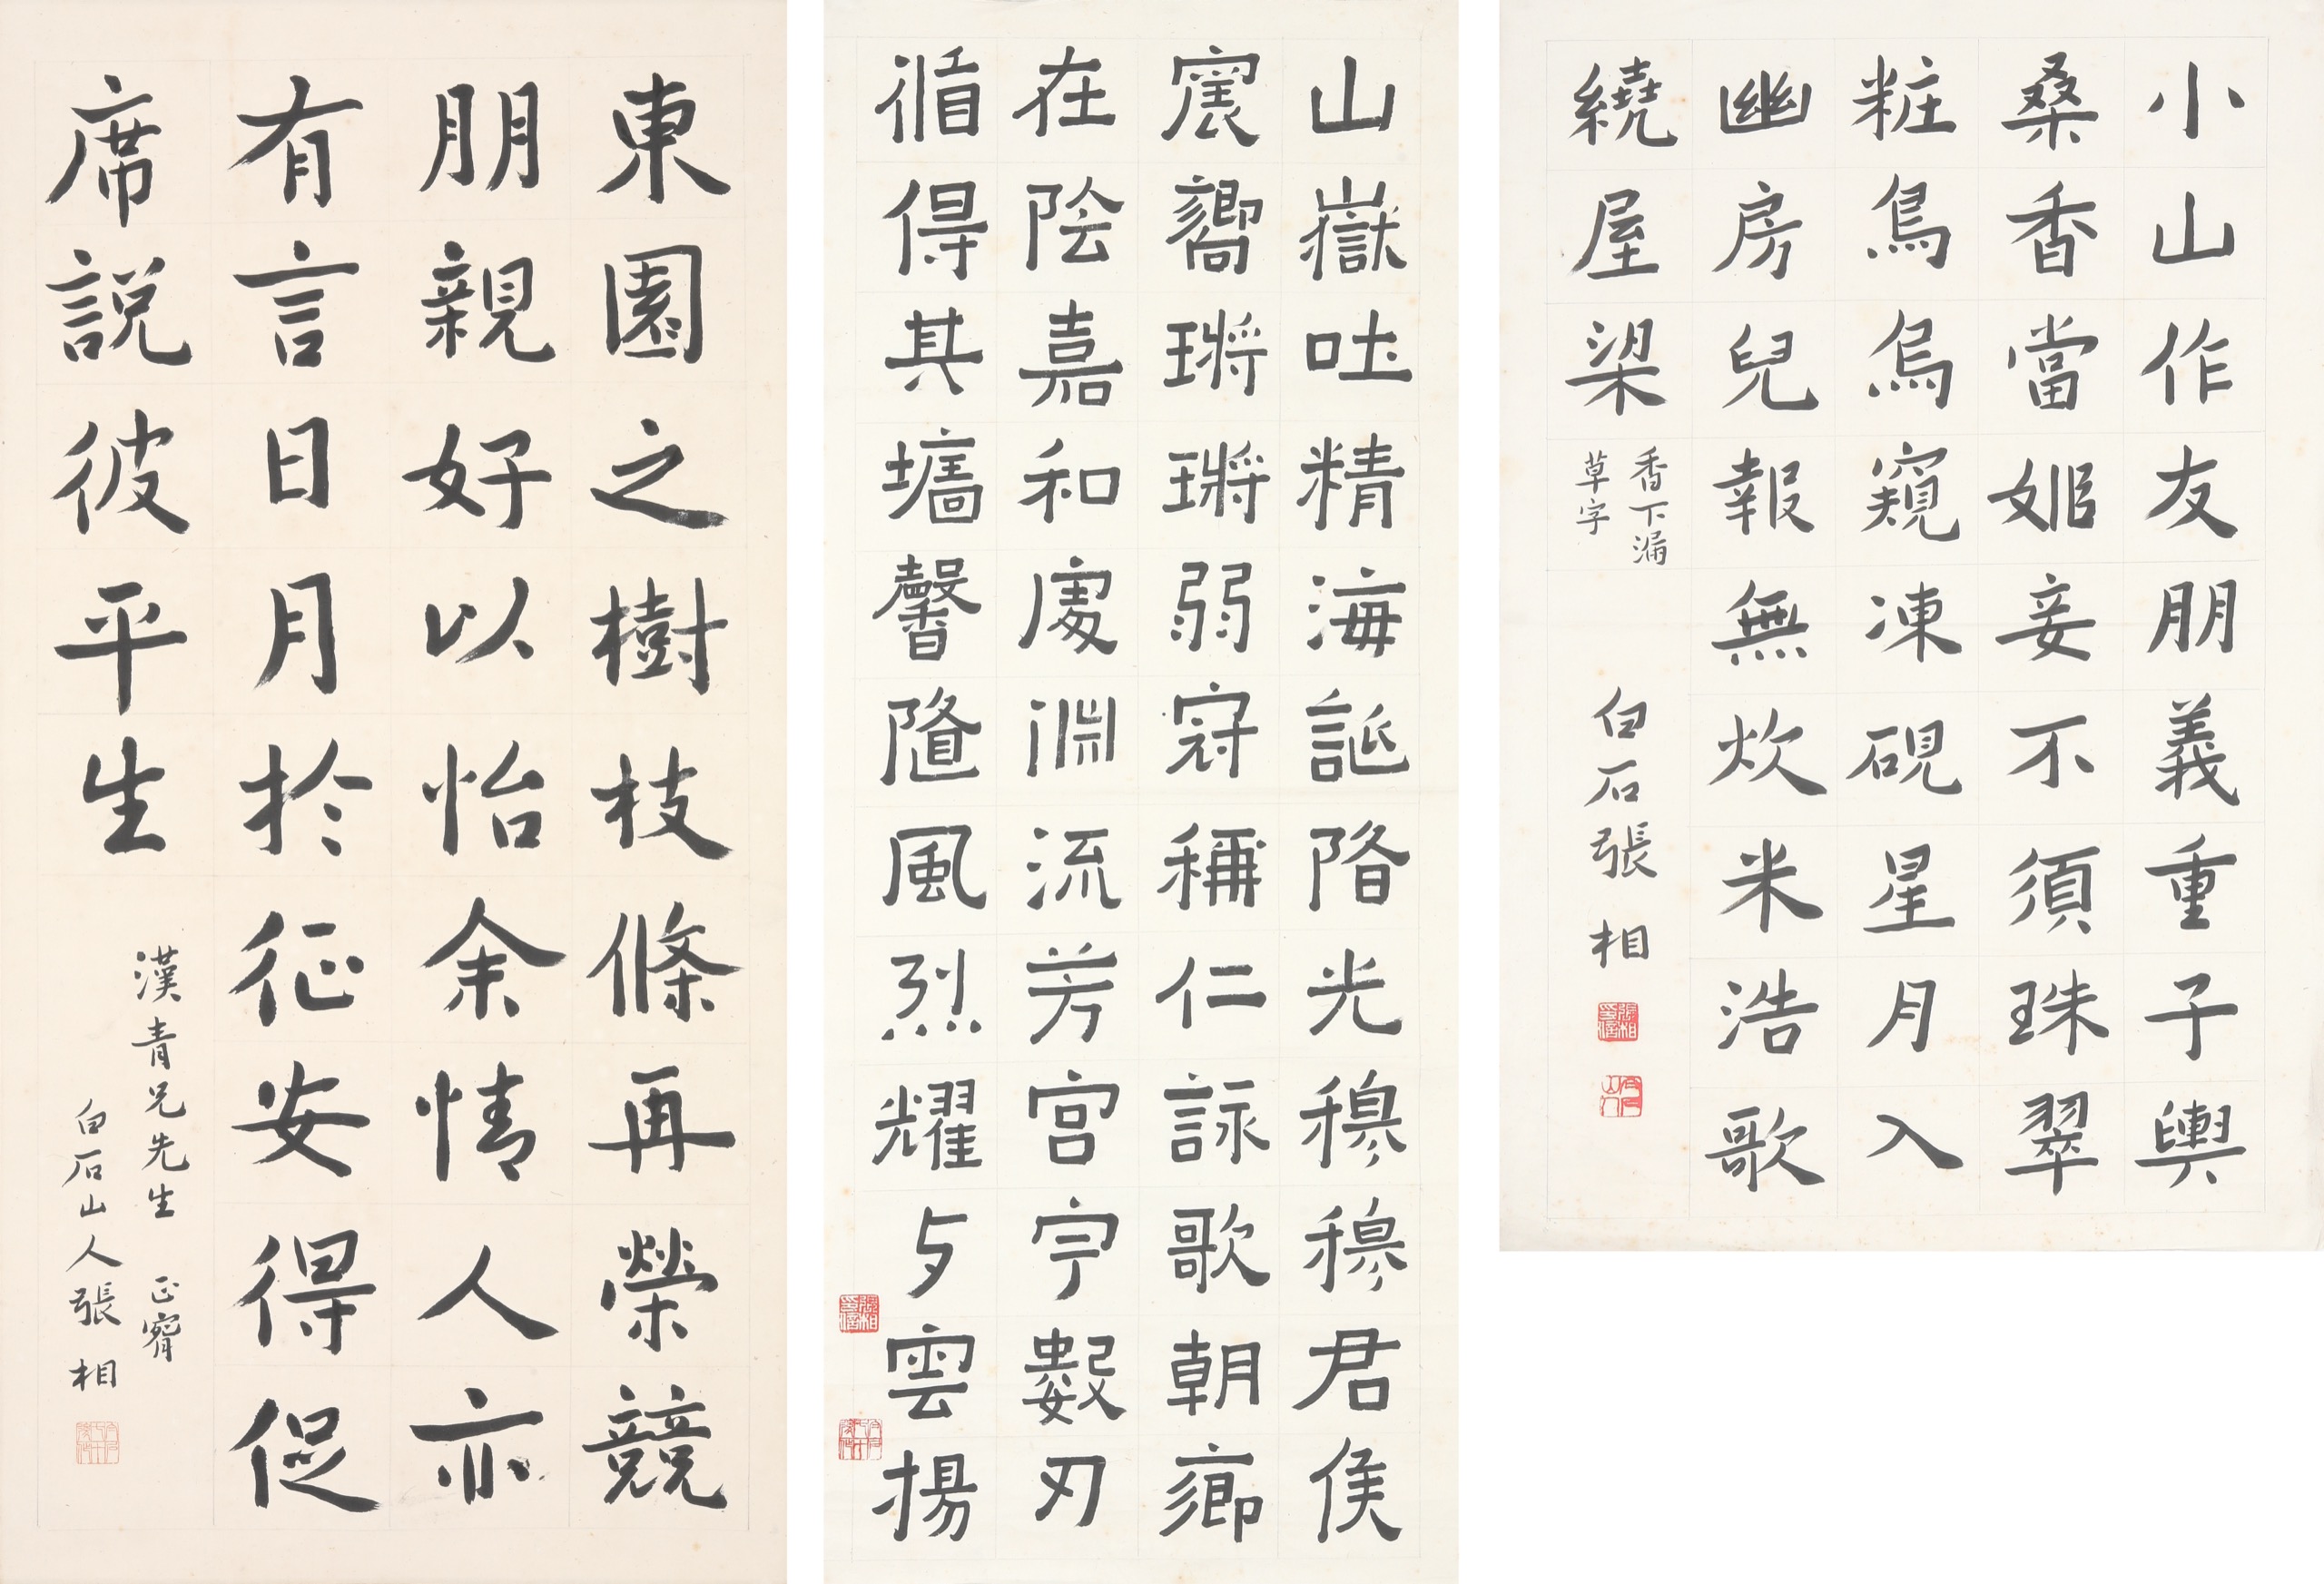 小山作友朋義重子輿
桑香當姬妾不須珠翠
粧鳥烏窺凍硯星月入
幽房兒報無炊米浩歌
繞屋梁
香下漏
草字
白石張相
山嶽吐精海誕隋光穆穆君侯
震嚮鏘鏘弱冠稱仁詠歌朝鄉
在陰嘉和處淵流芳宮宇數刃
循得其墻馨隨風烈耀与雲揚
東園之樹枝條再榮競
朋親好以怡余情人亦
有言日月於征安得促
席説彼平生
漢青兄先生 正
白石山人張相